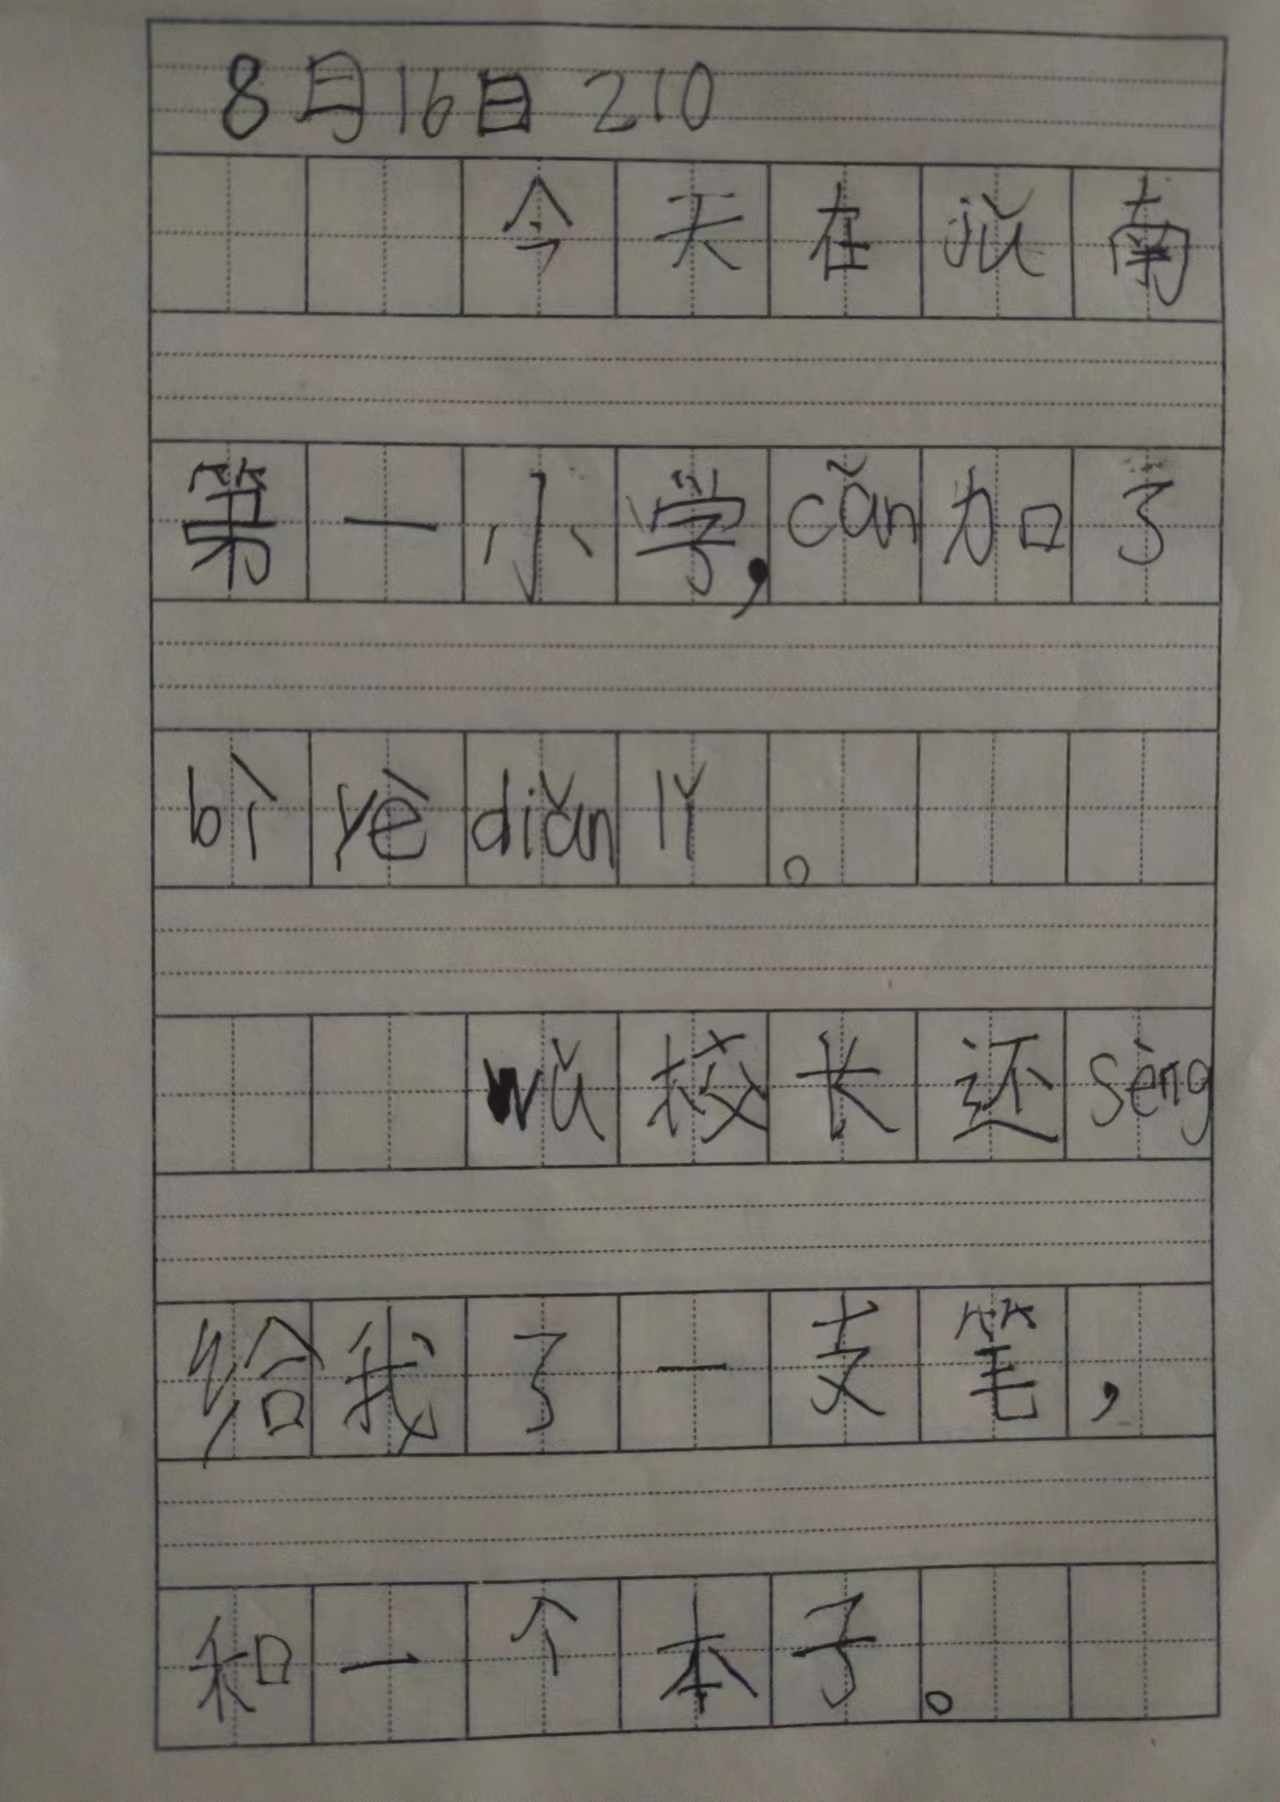 8月16日 210
今天在jǔ南
第一小学,cǎn加了
bì yè diǎn lǐ。
wǔ校长还sèng
给我了一支笔,
和一个本子。